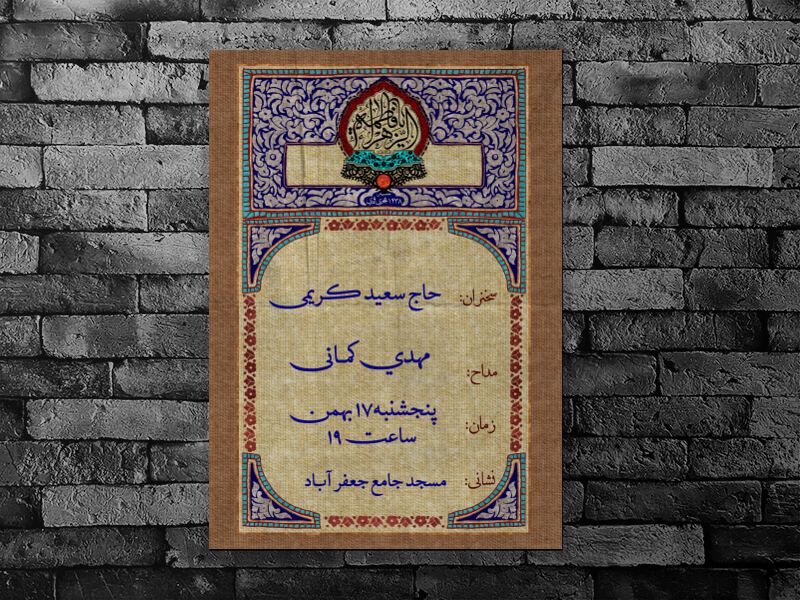 یا فاطمة الزهراء
سخنران: حاج سعید کریمی
مداح: مهدي کمانی
زمان: پنجشنبه ۱۷ بهمن
ساعت ۱۹
نشانی: مسجد جامع جعفر آباد